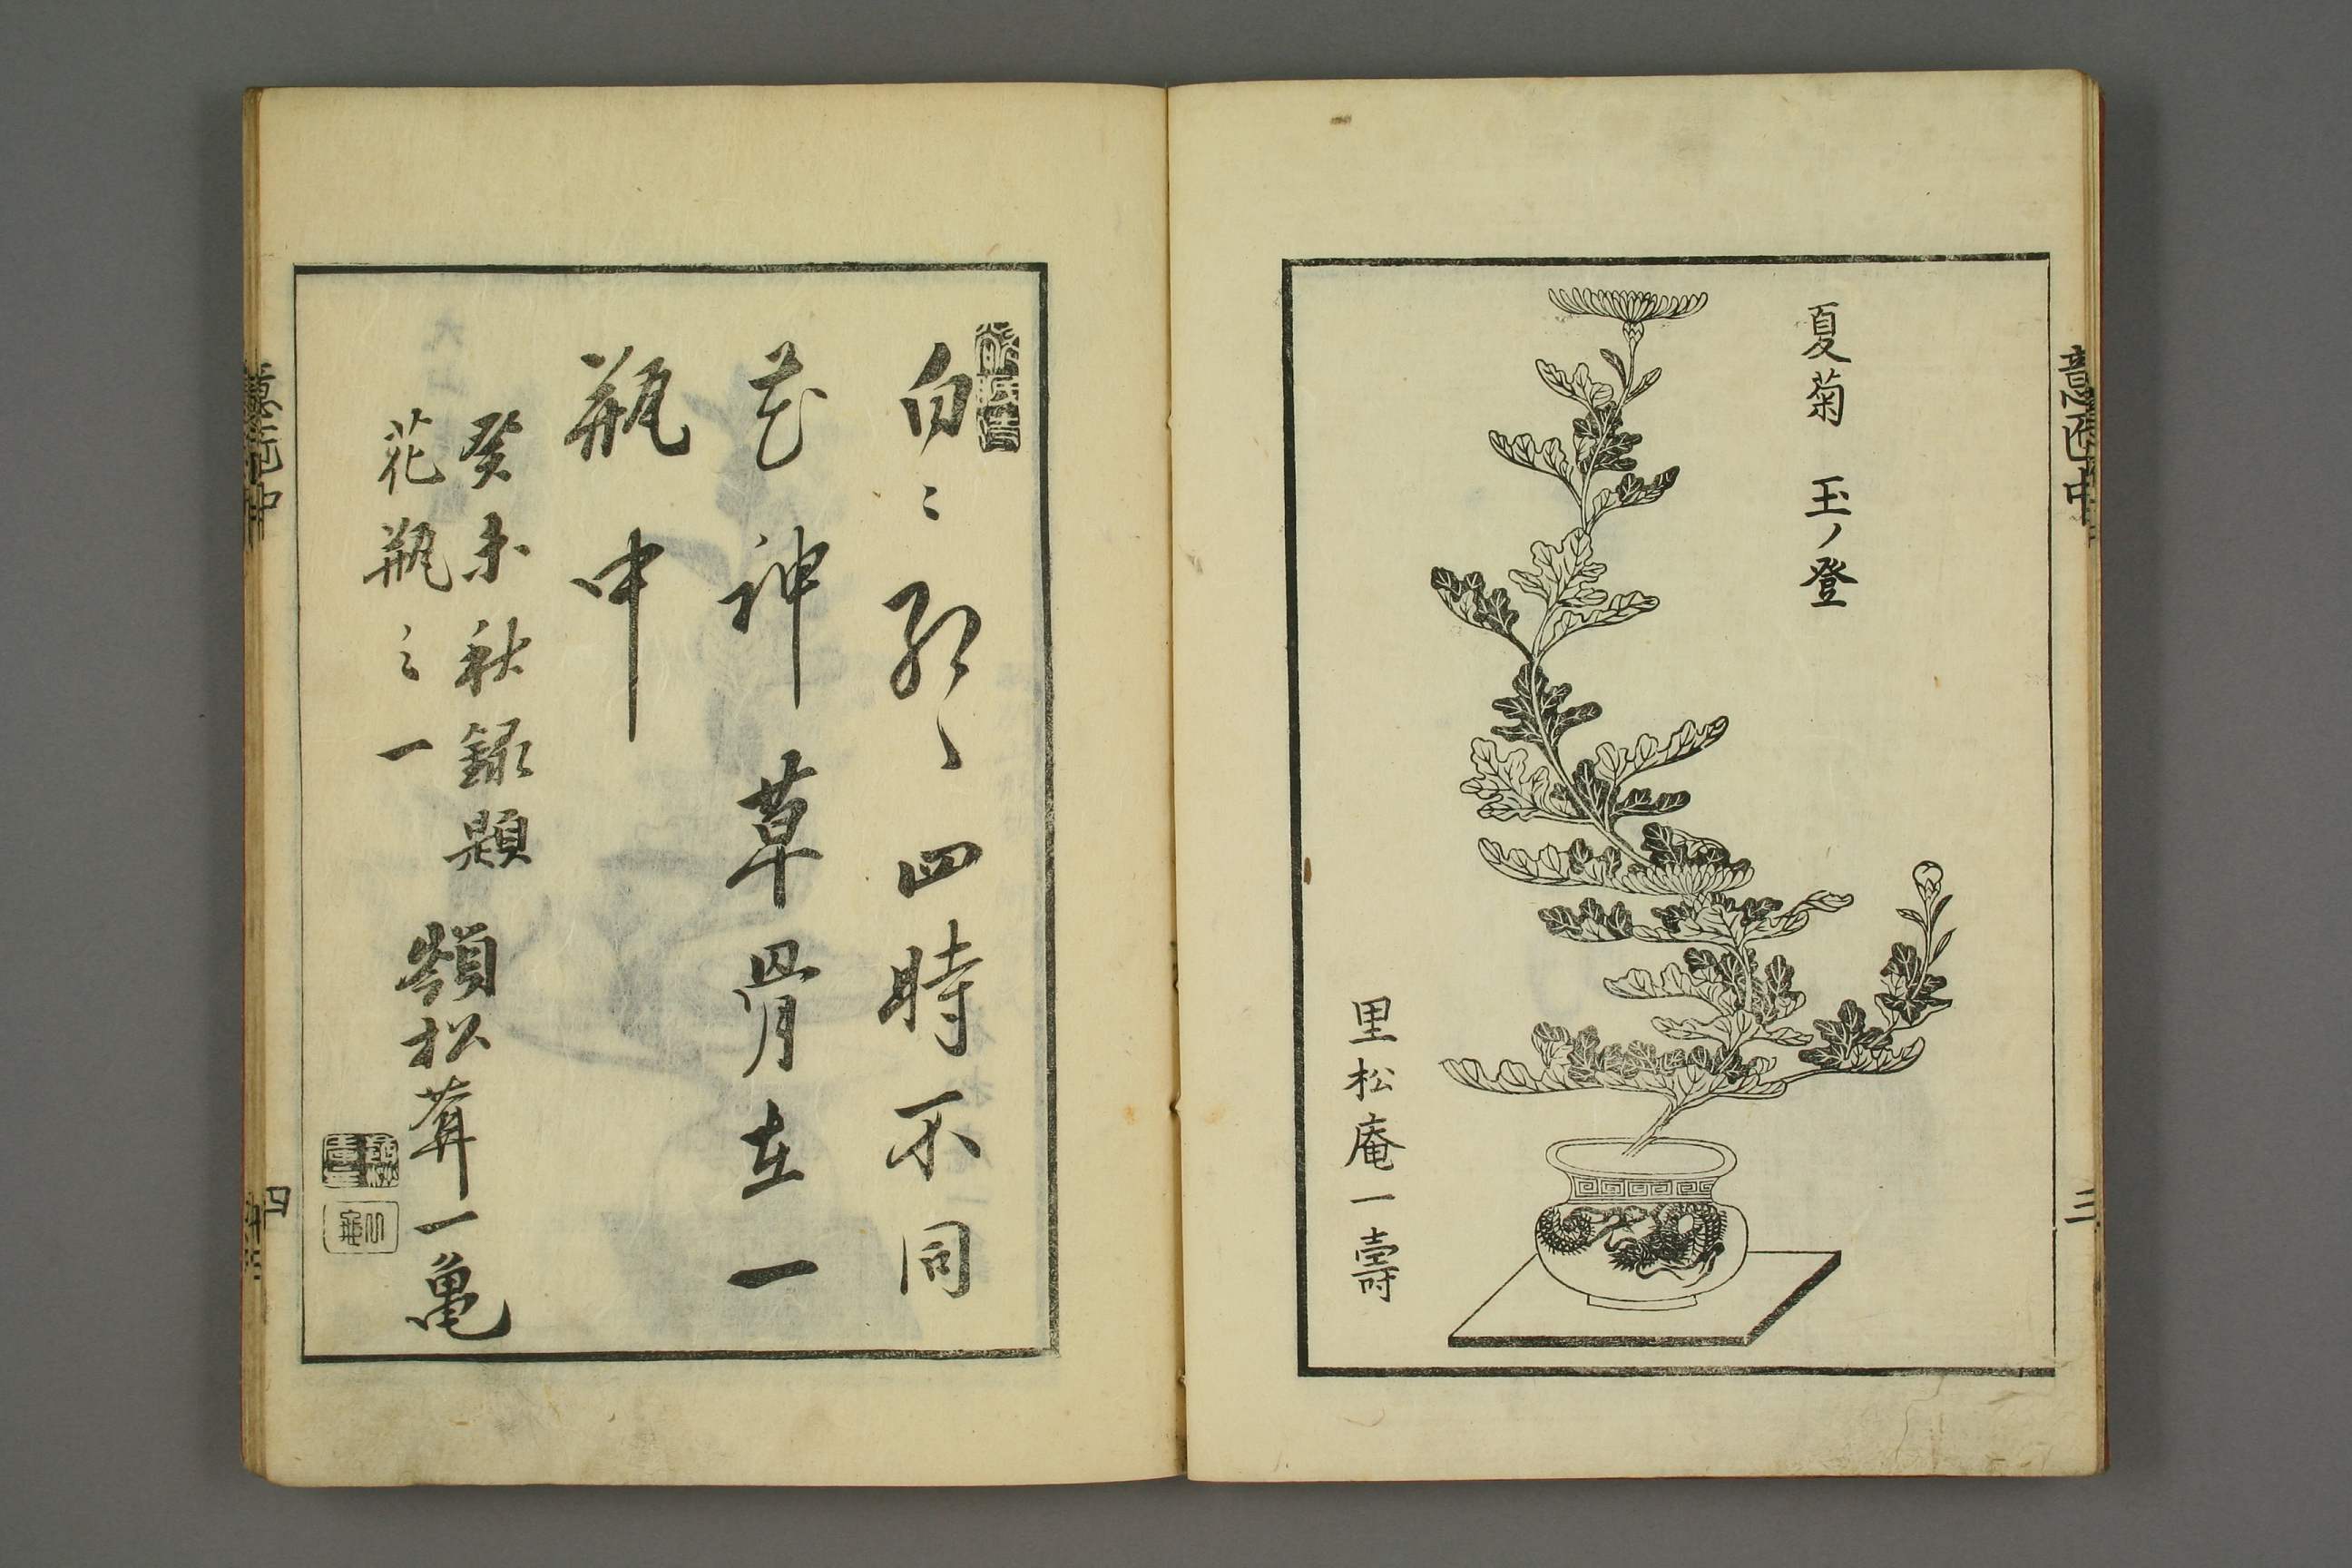 夏菊 玉ノ登
里松庵一壽
三
白〻紅〻四時不同
花神草骨在一
瓶中
癸未秋録題
花瓶之一
嶺松葊一亀
四